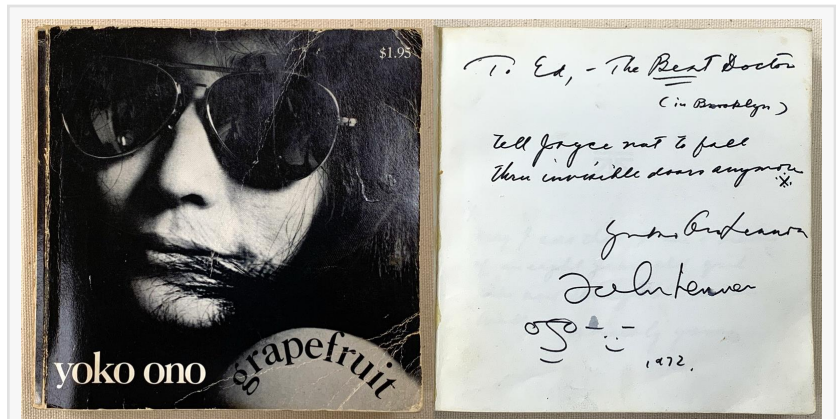 $1.95
yoko ono
grapefruit
To Ed, - The Best Doctor
(in Brooklyn)
tell Joyce not to fall
thru invisible doors anymore
Yoko Ono Lennon
John Lennon
1972.